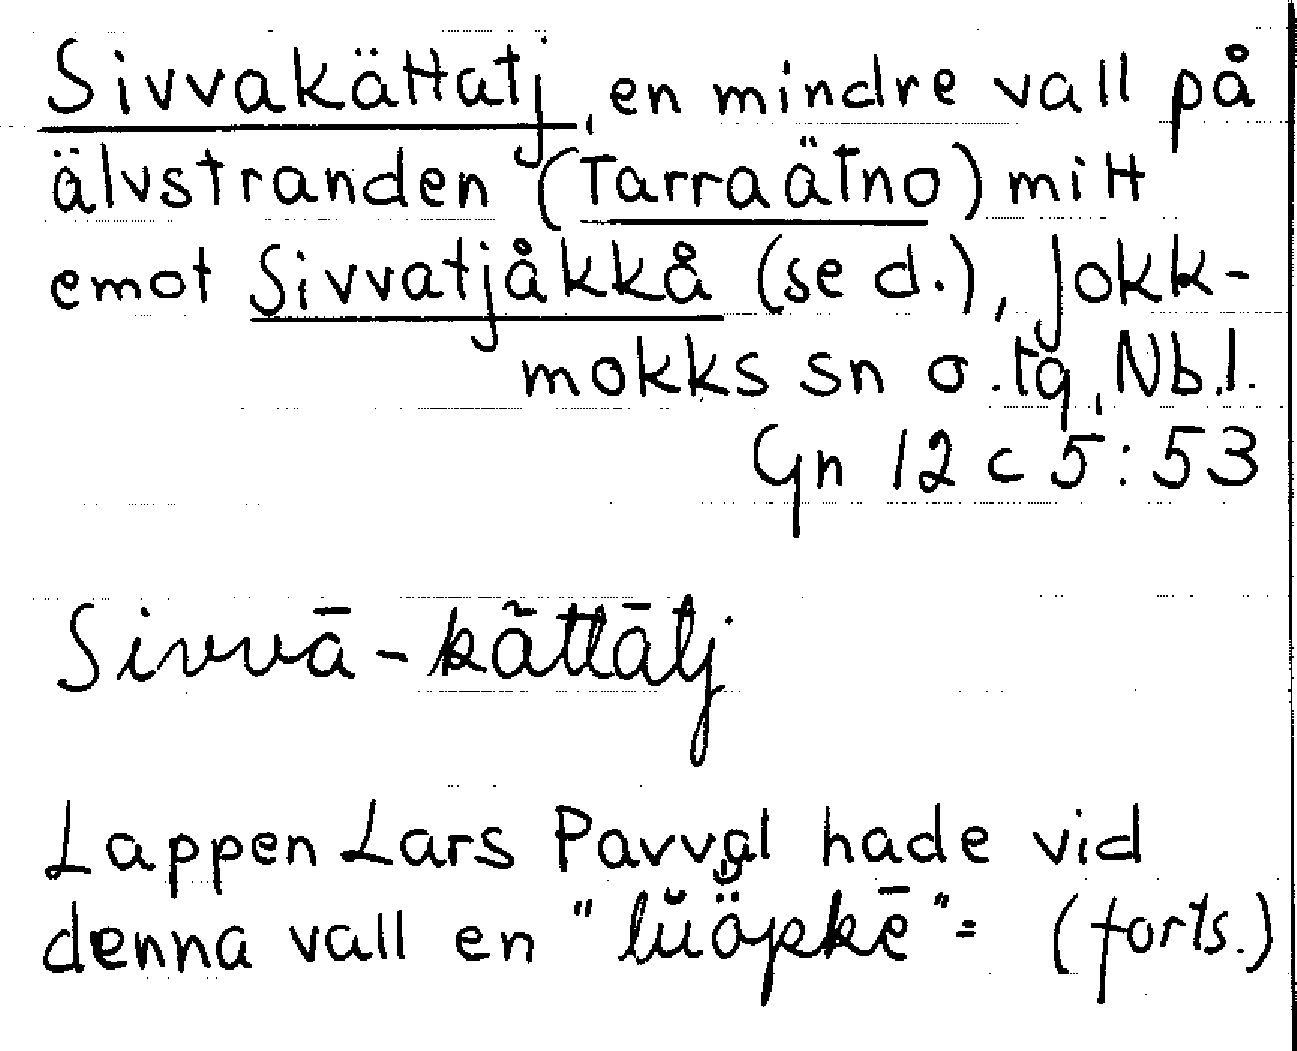 Sivvakättatj, en mindre vall på
älvstranden (Tarraätno) mitt
emot Sivvatjåkkå (se d.), Jokk-
mokks sn o. tg, Nb.l.
Gn 12 c 5:53
Sivvā-kãttātj
Lappen Lars Pavval hade vid
denna vall en "lŭöpkē" = (forts.)